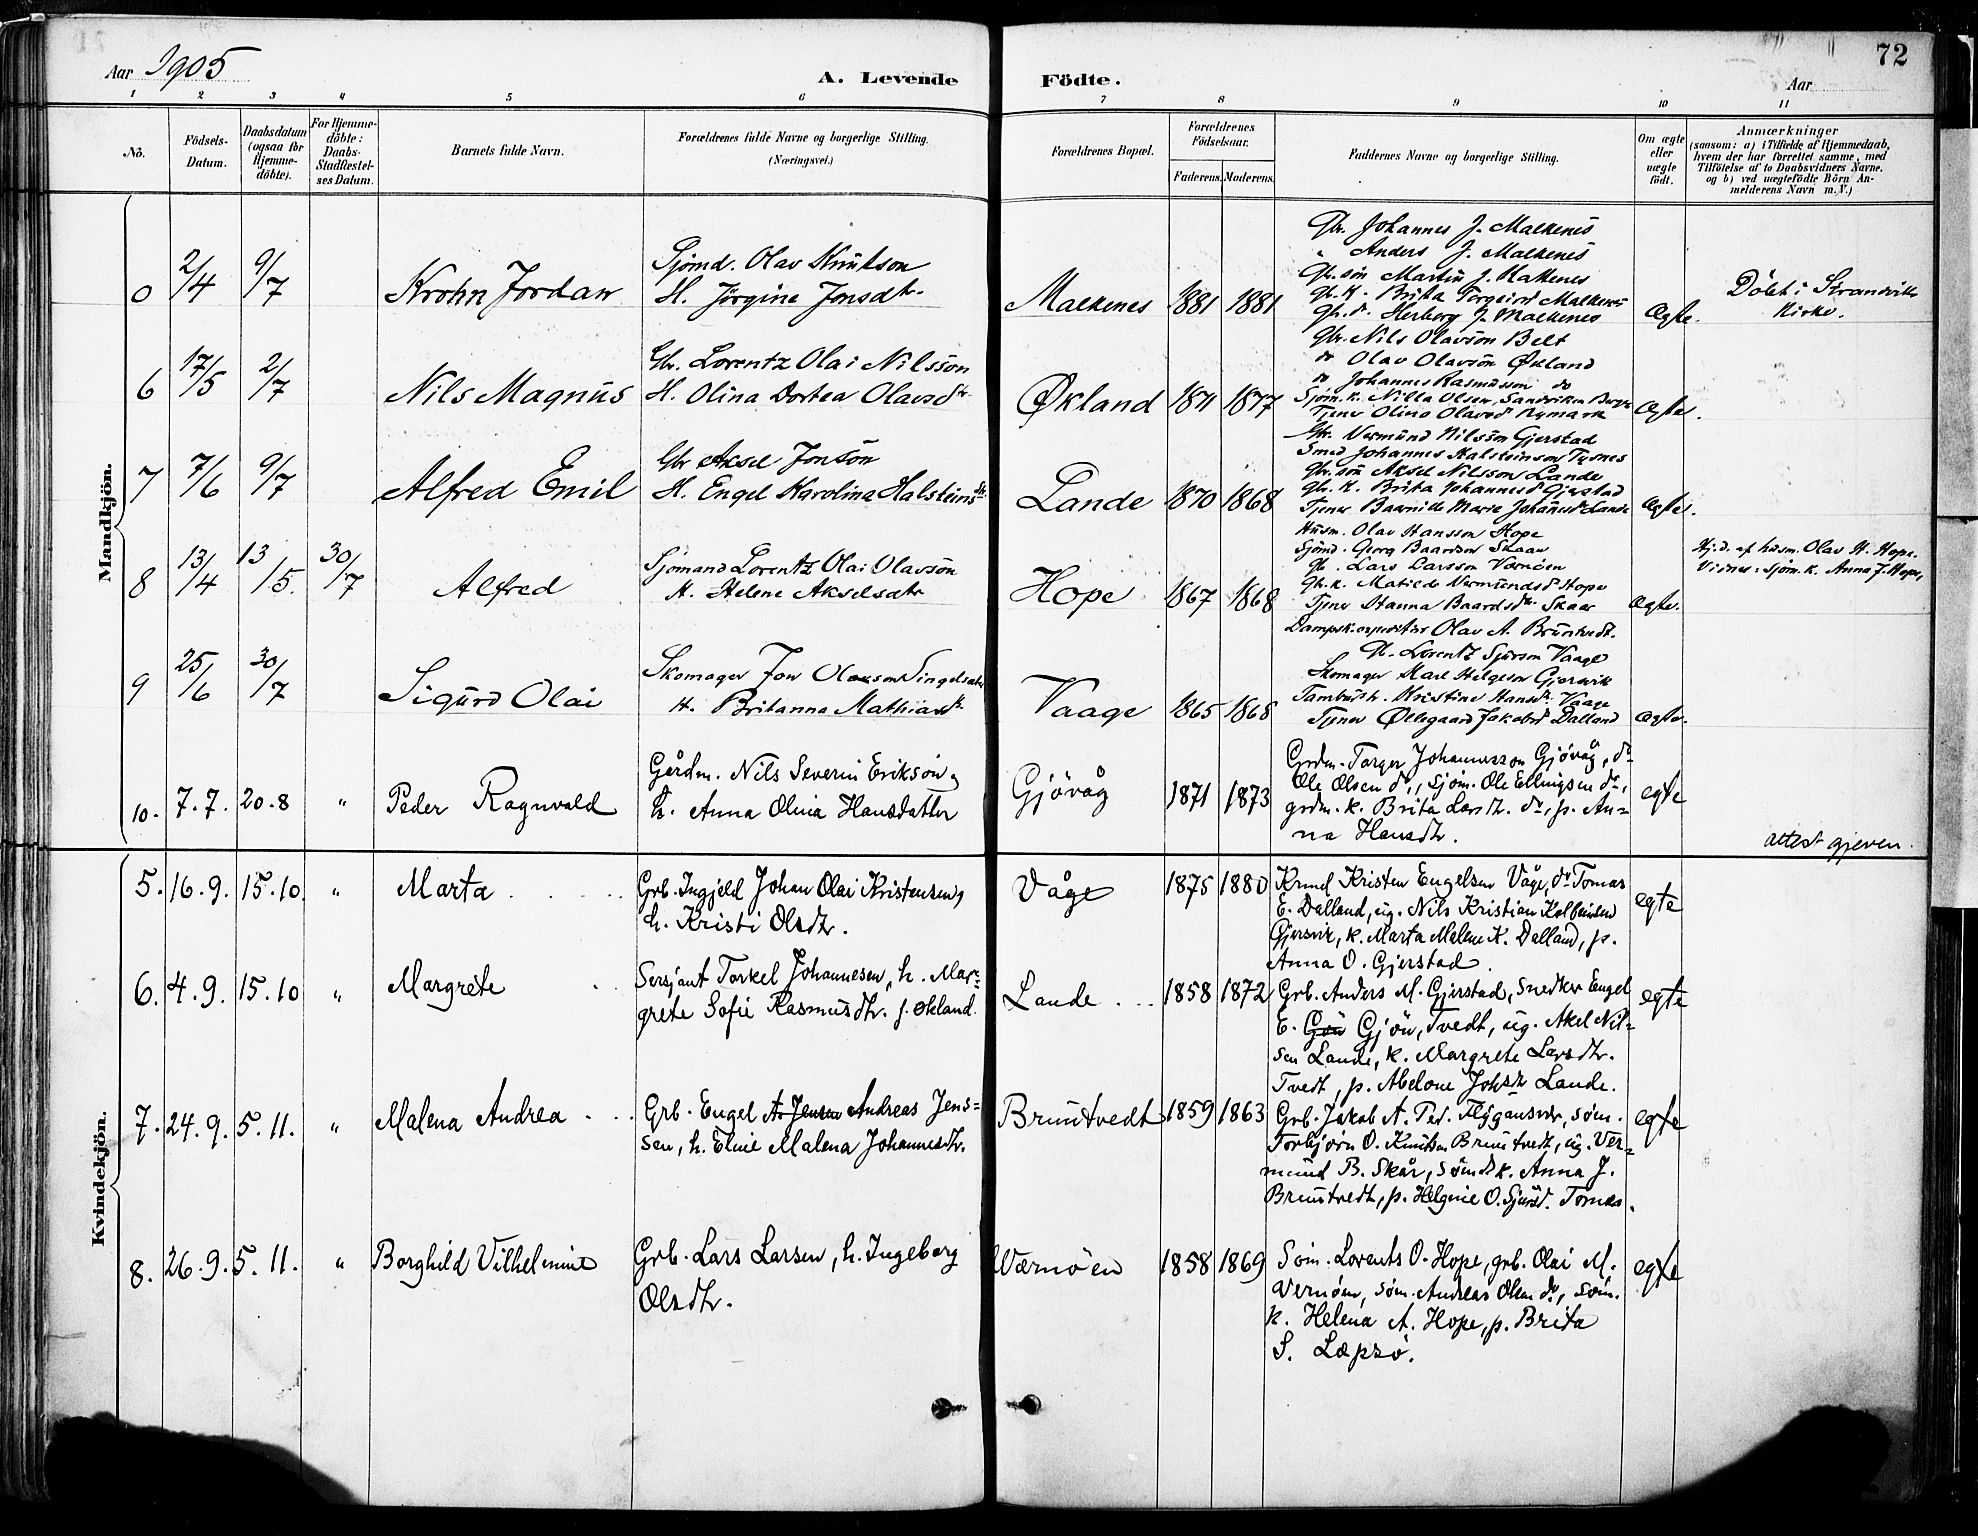 72
Aar 1905
A. Levende Födte.
Aar
1 2 3 4 5 6 7 8 9 10 11
Nō.
Födsels-Datum.
Daabsdatum (ogsaa for Hjemme-döbte).
For Hjemme-döbte: Daabs-Stadfæstel-ses Datum.
Barnets fulde Navn.
Forældrenes fulde Navne og borgerlige Stilling. (Næringsvei.)
Forældrenes Bopæl.
Forældrenes Födselsaar.
Faderens. Moderens.
Faddernes Navne og borgerlige Stilling.
Om ægte eller uægte födt.
Anmærkninger
(saasom: a) i Tilfælde af Hjemmedaab,
hvem der har forrettet samme, med
Tilföielse af to Daabsvidners Navne.
og b) ved uægtefödte Börn An-
melderens Navn m. V.)
Mandkjön.
2/4 9/7 Krohn Jordan
Sjömd. Olav Knutson
H. Jörgine Jonsdtr.
Malkenes 1881 1881
Gbr. Johannes J. Malkenes
" Anders J. Malkenes
Gbr. sön Martin J. Malkenes
Gbr. k. Brita Torgeirsd Malkenes
Gbr. d. Herborg J. Malkenes
Ægte.
Döbt i Strandvik
Kirke.
6 17/5 2/7 Nils Magnus
Gbr. Lorentz Olai Nilsson
H. Olina Dortea Olavsdtr
Økland 1871 1877
Gbr. Nils Olavson Belt
do Olav Olavsön Økland
do Johannes Rasmusson do
Sjöm. k. Nilla Olsen, Sandviken Bergen
Tjener Olina Olavsd Rymark
Ægte.
7 7/6 9/7 Alfred Emil
Gbr Aksel Jonson
H. Engel Karolina Halsteinsdtr
Lande 1870 1868
Gbr. Vermund Nilsson Gjerstad
Smed Johannes Halsteinson Tysnes
Gbr. sön Aksel Nilsson Lande
Gbr. k. Brita Johannesd Gjerstad
Tjener Marie Johannesd Lande
Ægte.
8 13/4 13/5. 30/7 Alfred
Sjömand Lorentz Olai Olavsön
H. Helene Akselsdtr
Hope 1867 1868
Husm. Olav Hansson Hope
Sjömd. Georg Baardson Skaar
Gbr. Lars Larsson Værnöen
Gbr. k. Matilde Vermundsd Hope
Tjener Hanna Baardsdtr Skaar
Ægte.
Hj.d. af husm. Olav H. Hope.
Vidner: Sjöm. k. Anna J. Hope,
9 25/6 30/7 Sigurd Olai
Skomager Jon
H. Britanna Mathiasdtr
Vaage 1865 1868
Dampsk.expeditör Olav A. Bruntvedt.
Lorentz Sjurson Vaage
Skomager Karl Helgeson Gjersvik
Kristine Hansdtr. Vaage
Tjener Øllegaard Jakobsd Dalland
Ægte.
10. 7. 7. 20. 8 " Peder Ragnvald
Gårdm. Nils Severin Erikson,
h. Anna Olina Hansdatter
Gjövåg 1871 1873
Grdm. Torger Johannesson Gjövåg, do
Ole Olsen do, sjöm. Ole Ellingsen do,
grdm. k. Brita Larsdtr. do, p. An=
na Hansdtr.
egte
attest gjeven.
Kvindekjön.
5. 16. 9. 15. 10. " Marta
Grb. Ingjeld Johan Olai Kristensen,
h. Kristi Olsdtr.
Våge 1875 1880
Krmd Kristen Engelsen Våge, do Tomas
E. Dalland, ug. Nils Kristian Kolbeinsen
Gjersvik, k. Marta Malene K. Dalland, p.
Anna O. Gjerstad.
egte
6. 4. 9. 15. 10 " Margrete
Sersjant Torkel Johannesen, h. Mar=
grete Sofie Rasmusdtr. f. Økland.
Lande 1858 1872
Grb. Anders M. Gjerstad, snedker Engel
E. Gjön, Tvedt, ug. Aksel Nil=
sen Lande, k. Margrete Larsdtr.
Tvedt, p. Abelone Johsdr Lande.
egte
7. 24. 9. 5. 11. " Malena Andrea
Grb. Engel A. Jensen Andreas Jens=
sen, h. Eline Malena Johannesdtr.
Bruntvedt 1859 1863
Grb. Jakob A. Ped. Flygansvær, söm.
Torbjörn O. Knutsen Bruntvedt, ug. Ver=
mund B. Skår, sömds k. Anna J.
Bruntvedt, p. Helgine O. Sjursd. Tornes.
egte
8. 26. 9. 5. 11. " Borghild Vilhelmine
Grb. Lars Larsen, h. Ingeborg
Olsdtr.
Værnöen 1858 1869
Söm. Lorents O. Hope, grb. Olai M.
Vernöen, söm. Andreas Olsen do, söm.
k. Helena A. Hope, p. Brita
S. Læpsö.
egte